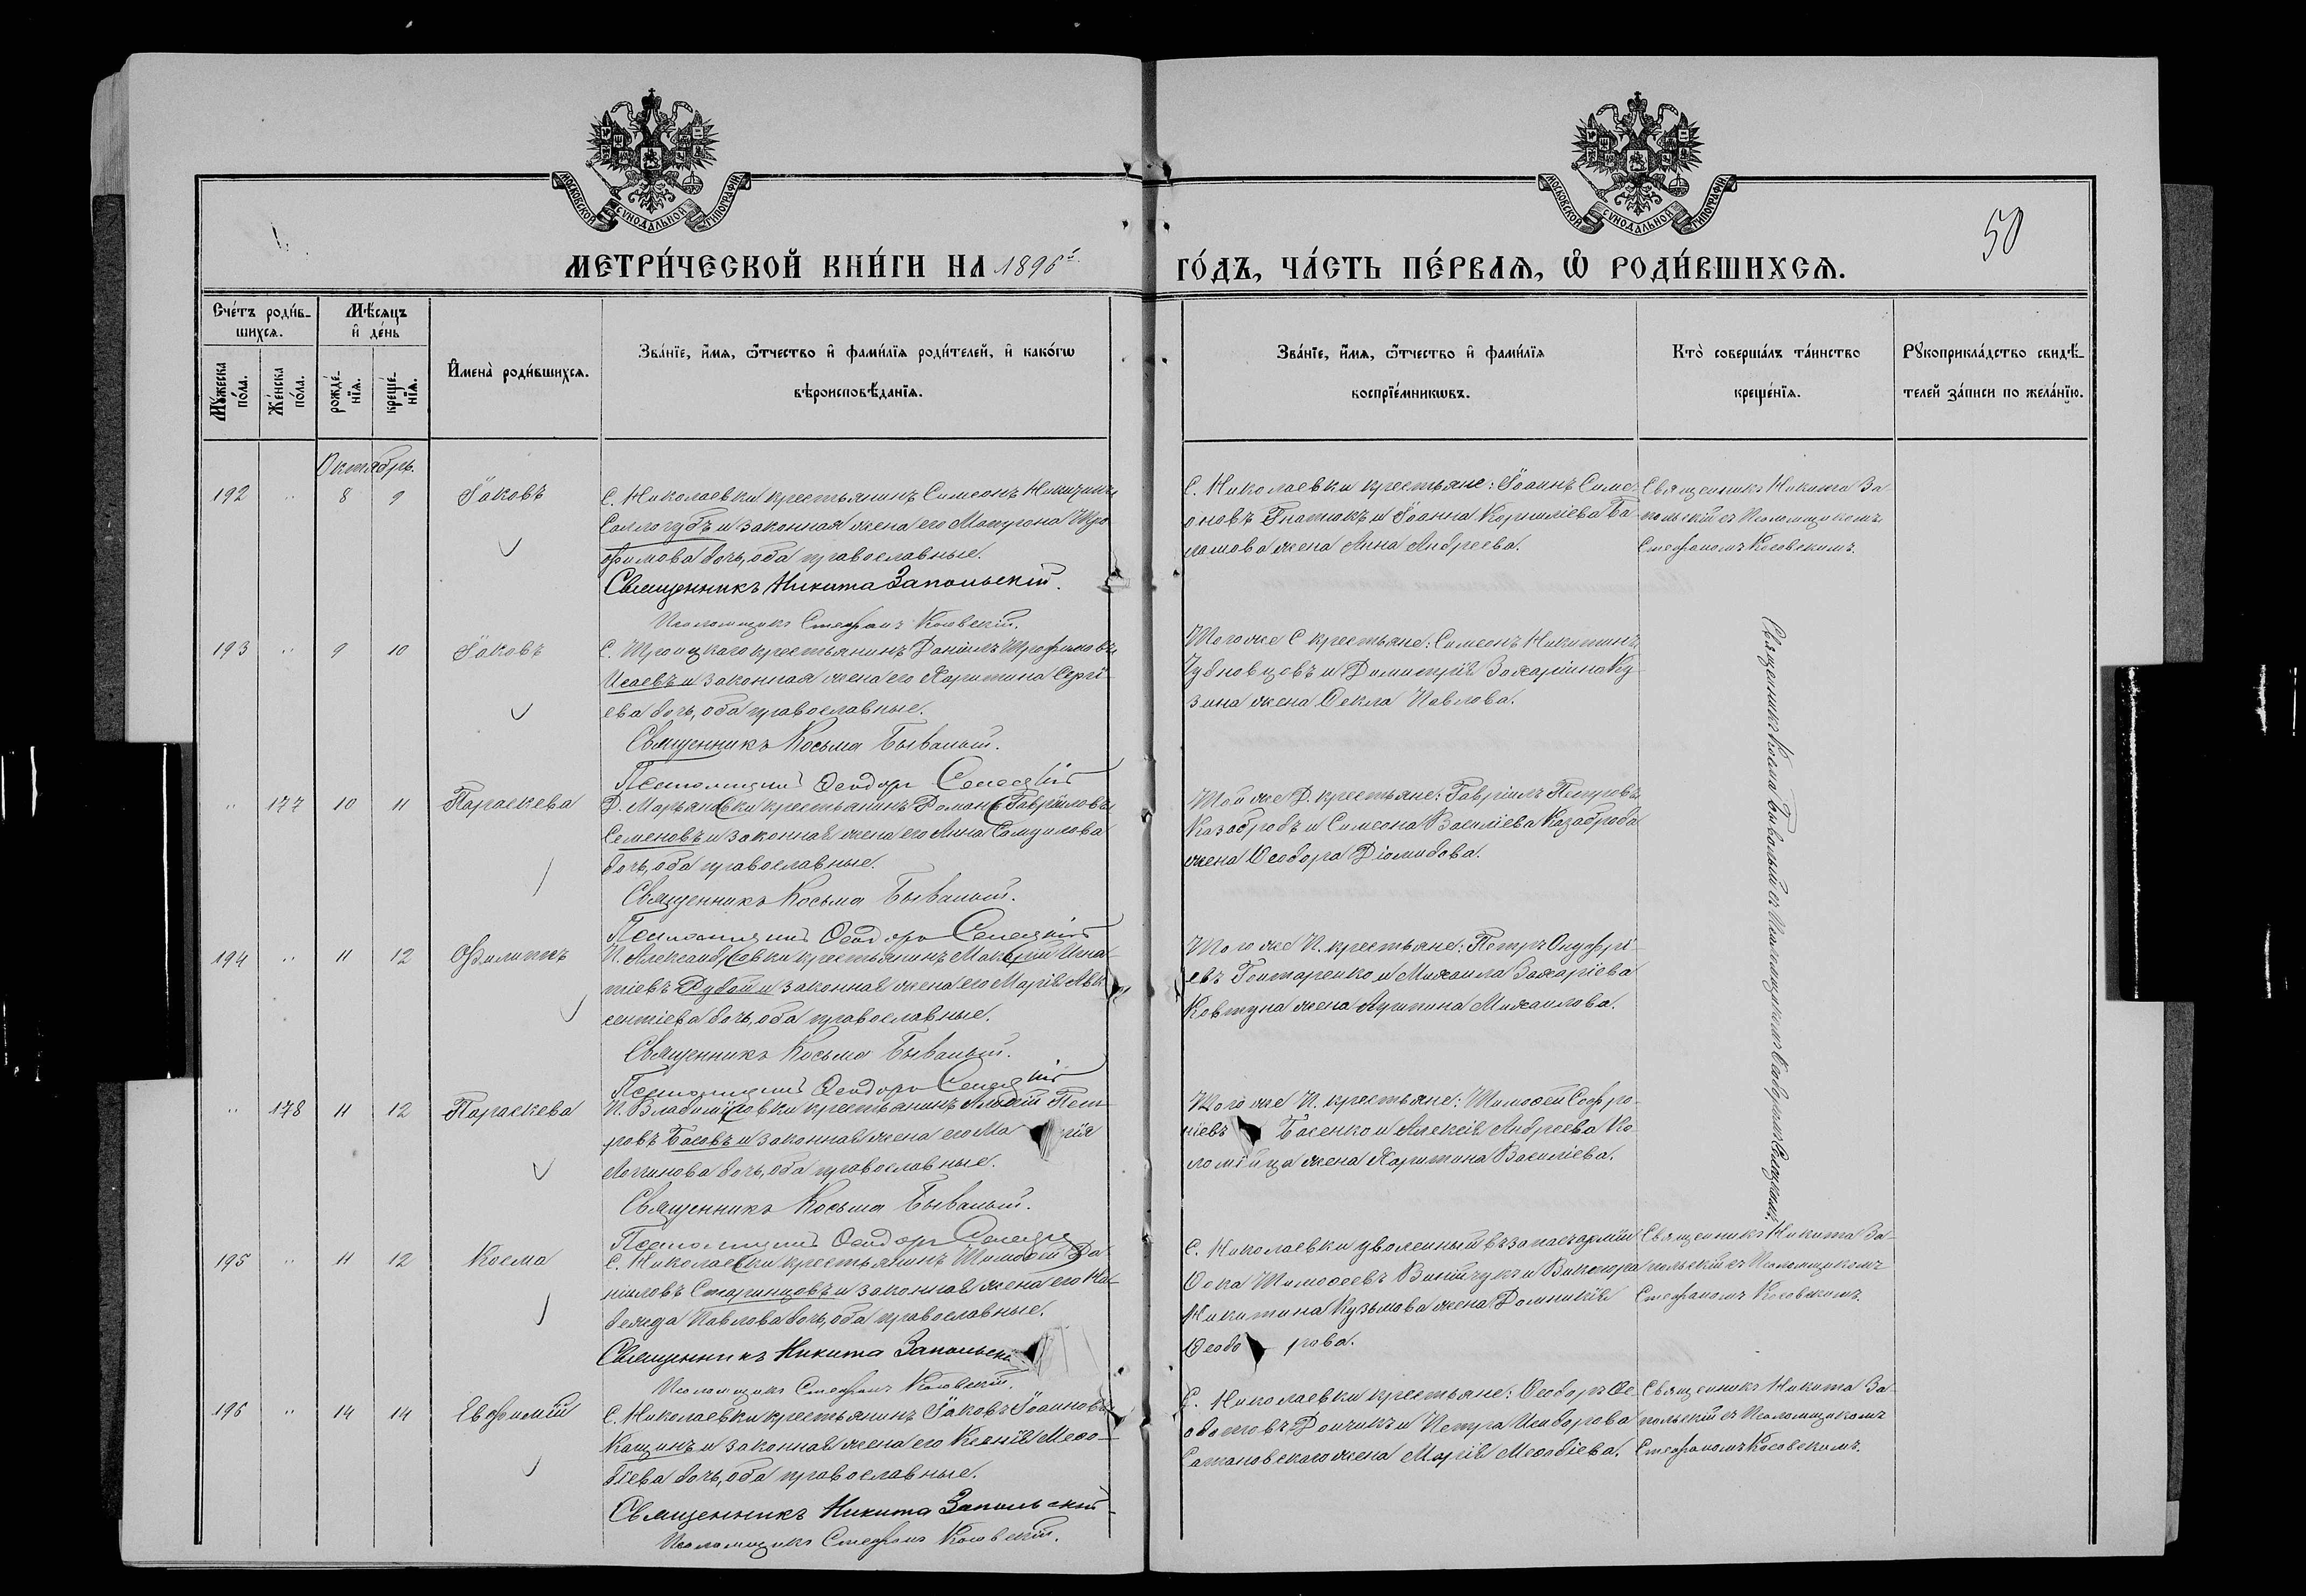 МОСКОВСКОЙ СѴНОДАЛЬНОЙ ТИПОГРАФІИ
МОСКОВСКОЙ СѴНОДАЛЬНОЙ ТИПОГРАФІИ
50
МЕТРИ́ЧЕСКОЙ КНИ́ГИ НА 1896й
ГО́ДЪ, ЧА́СТЬ ПЕ́РВАЯ, Ѡ РОДИ́ВШИХСЯ.
Сче́тъ роди́в-
шихся.
Мѣ́сяцъ
и де́нь
Мꙋ́жеска по́ла.
Же́нска по́ла.
рожде́-
нїя.
креще́-
нїя.
Имена̀ роди́вшихся.
Зва́нїе, и́мя, ѻ҆́тчество и фами́лїя роди́телей, и како́гѡ
вѣроисповѣ́данїя.
Зва́нїе, и́мя, ѻ҆́тчество и фами́лїя
воспрїе́мникѡвъ.
Кто̀ соверша́лъ та́инство
креще́нїя.
Рꙋкоприкла́дство свидѣ́-
телей за́писи по жела́нїю.
Октябрь.
192 " 8 9 Іаковъ
С. Николаевки крестьянинъ Симеонъ Никитинъ
Соллогубъ и законная жена его Матрона Тро
фимова дочь, оба православные.
Священникъ Никита Запольскій.
Псаломщикъ Стефанъ Косовскій.
С. Николаевки крестьяне: Іоаннъ Симе
оновъ Гнатюкъ и Іоанна Корниліева Ба
лашова жена Анна Андреева.
Священникъ Никита За-
польскій съ Псаломщикомъ
Стефаномъ Косовскимъ.
193 " 9 10 Іаковъ
С. Троицкаго крестьянинъ Даніилъ Трофимовъ
Исаевъ и законная жена его Харитина Сергі
ева дочь, оба православные.
Священникъ Косьма Бывалый.
Псаломщикъ Ѳеодоръ Селецкій
Того же С крестьяне: Симеонъ Никитинъ
Чубновцовъ и Димитрія Захаріина Ку
зина жена Ѳекла Павлова.
Священникъ Косма Бывалый съ Псаломщикомъ Ѳеодоромъ Селецкимъ.
" 177 10 11 Параскева
Д. Марьяновки крестьянинъ Романъ Гавріиловъ
Семеновъ и законная жена его Анна Самуилова
дочь, оба православные.
Священникъ Косьма Бывалый.
Псаломщикъ Ѳеодоръ Селецкій
Той же Д. крестьяне: Гавріилъ Петровъ
Казабродъ и Симеона Василіева Казаброда
жена Ѳеодора Діомидова.
194 " 11 12 Филиппъ
П. Александровки крестьянинъ Макарій Игна-
тіевъ Дубой и законная жена его Марія Авк
сентіева дочь, оба православные.
Священникъ Косьма Бывалый.
Псаломщикъ Ѳеодоръ Селецкій
Того же П. крестьяне: Петръ Онуфрі-
евъ Гонтаренко и Михаила Захаріева
Ковтуна жена Агрипина Михаилова.
" 178 11 12 Параскева
П. Владиміровки крестьянинъ Алексій Пет-
ровъ Басовъ и законная жена его Ма рія
Логгинова дочь, оба православные.
Священникъ Косьма Бывалый.
Псаломщикъ Ѳеодоръ Селецкій
Того же П. крестьяне: Тимоѳей Софро-
ніевъ Басенко и Алексія Андреева Ко
ломійца жена Харитина Василіева.
195 " 11 12 Косма
С. Николаевки крестьянинъ Тимоѳей Да
ніиловъ Старинцовъ и законная жена его На
дежда Павлова дочь, оба православные.
Священникъ Никита Запольскі
Псаломщикъ Стефанъ Косовскій.
С. Николаевки уволенный въ запасъ арміи
Ѳока Тимоѳеевъ Винійчукъ и Виктора
Никитина Кузьмова жена Домникія
Ѳеодо рова.
Священникъ Никита За-
польскій съ Псаломщикомъ
Стефаномъ Косовскимъ.
196 " 14 14 Евфимій
С. Николаевки крестьянинъ Іаковъ Іоанновъ
Кащинъ и законная жена его Ксенія Меѳо-
діева дочь, оба православные.
Священникъ Никита Запольскій
Псаломщикъ Стефанъ Косовскій.
С. Николаевки крестьяне: Ѳеодоръ Ѳе-
одотовъ Дончикъ и Петра Исидорова
Сатановскаго жена Марія Меѳодіева.
Священникъ Никита За-
польскій съ Псаломщикомъ
Стефаномъ Косовскимъ.